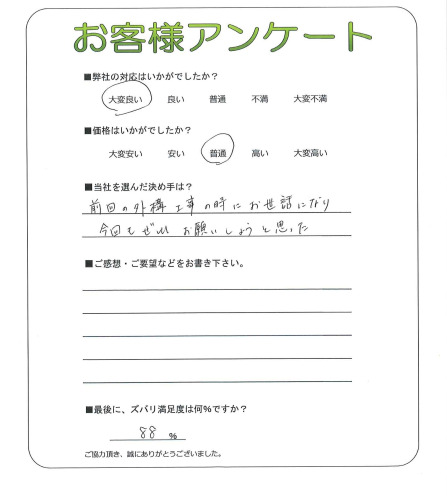 お客様アンケート
■弊社の対応はいかがでしたか?
大変良い 良い 普通 不満 大変不満
■価格はいかがでしたか?
大変安い 安い 普通 高い 大変高い
■当社を選んだ決め手は?
前回の外構工事の時にお世話になり
今回もぜひお願いしようと思った
■ご感想・ご要望などをお書き下さい。
■最後に、ズバリ満足度は何%ですか?
88 %
ご協力頂き、誠にありがとうございました。